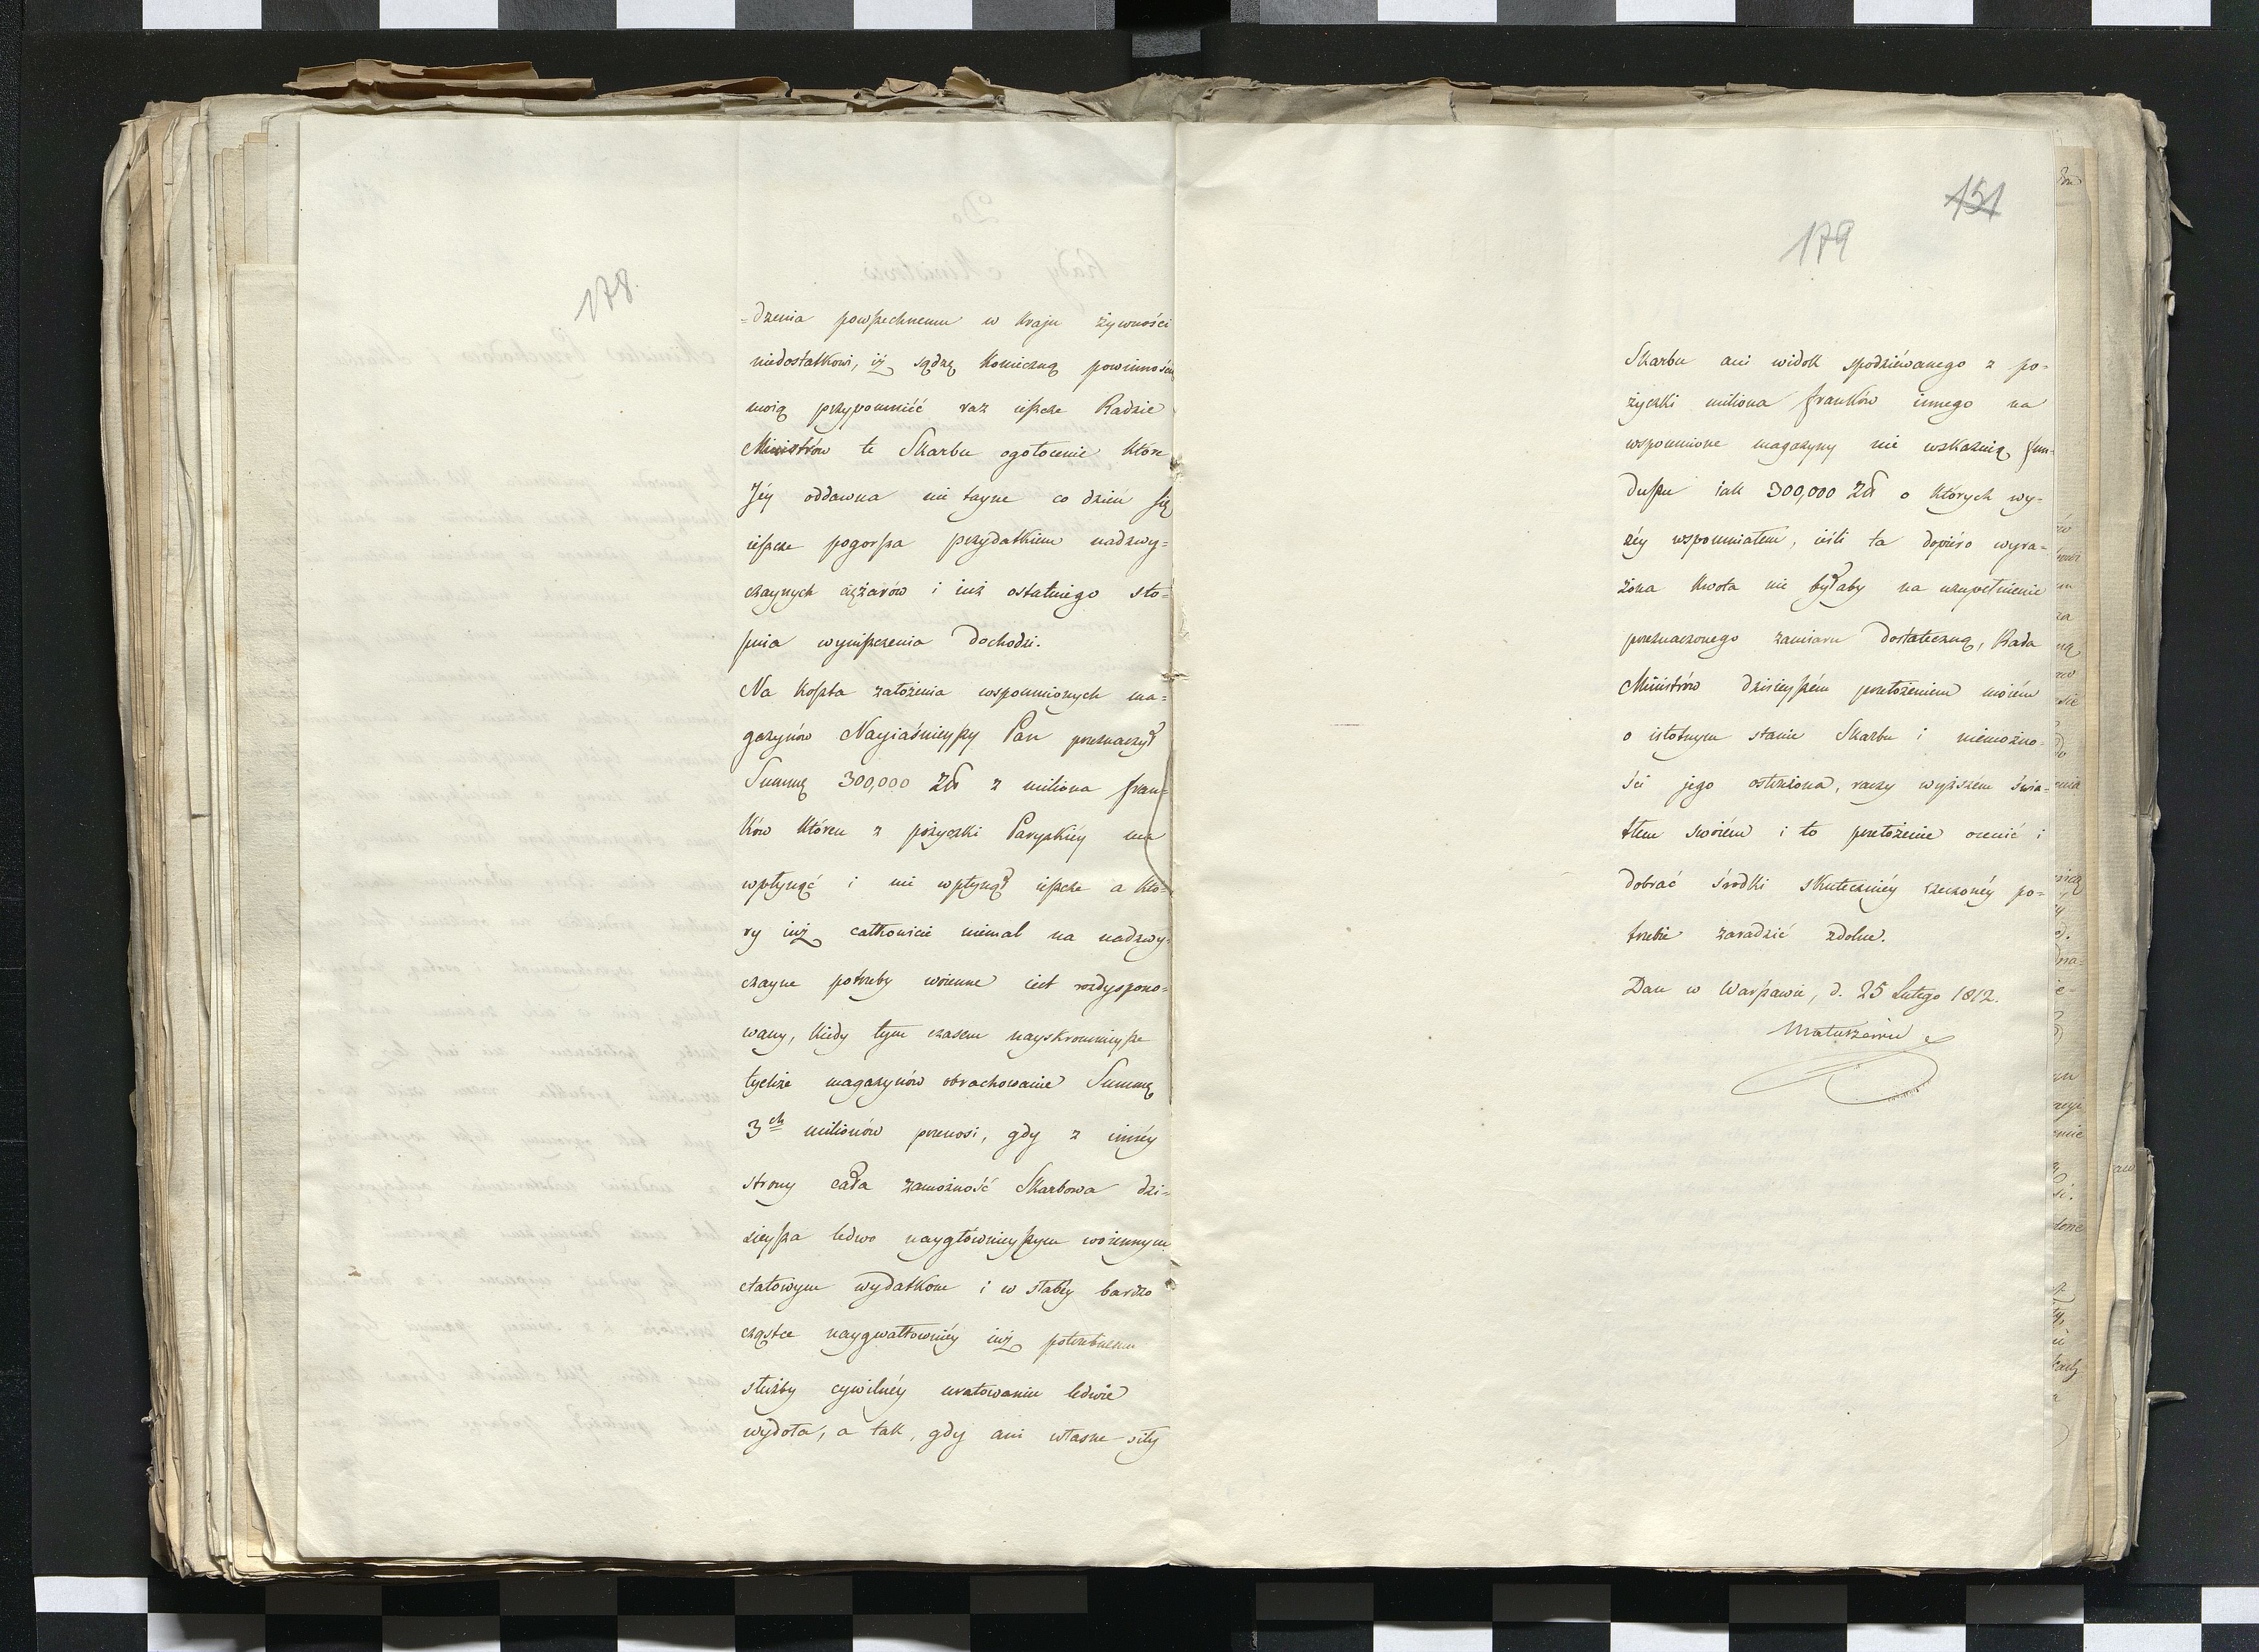 178.
-dzenia powszechnemu w kraju żywności
niedostatkowi, iż sądzę konieczną powinnością
moią przypomnieć raz ieszcze Radzie
Ministrów te Skarbu ogołocenie które
Jéy oddawna nie tayne co dzień się
ieszcze pogorsza przydatkiem nadzwy=
czaynych ciężarów i iuż ostatniego sto=
pnia wyniszczenia dochodzi.
Na koszta założenia wspomnionych ma=
gazynów Nayiaśnieyszy Pan przeznaczył
Summę 300,000 Zł z miliona fran=
ków którén z pożyczki Paryzkiéy ma
wpłynąć i nie wpłynął ieszcze a któ=
ry iuż całkowicie niemal na nadzwy=
czayne potrzeby woienne iest rozdyspono=
wany, kiedy tym czasem nayskromnieysze
tychże magazynów obrachowanie Summę
3ch milionów przenosi, gdy z innéy
strony cała zamożność Skarbowa dzi=
sieysza ledwo naygłównieyszym woiennym
etatowym wydatkom i w słabéy bardzo
cząstce naygwałtowniéy iuż potrzebnemu
służby cywilnéy uratowaniu ledwie
wydoła, a tak, gdy ani własne siły
151
179
Skarbu ani widok spodziéwanego z po=
życzki miliona franków innego na
wspomnione magazyny nie wskazuią fun=
duszu iak 300,000 Zł o których wy=
żéy wspomniałem, ieśli ta dopiéro wyra=
żona kwota nie byłaby na uzupełnienie
przeznaczonego zamiaru dostateczną, Rada
Ministrów dzisieyszém przełożeniem moiém
o istotnym stanie Skarbu i niemożno=
ści jego ostrzeżona, raczy wyższém świa=
tłem swoiém i to przełożenie ocenić i
dobrać środki skuteczniéy rzeczonéy po=
trzebie zaradzić zdolne.
Dan w Warszawie, d. 25 Lutego 1812.
Matuszewic